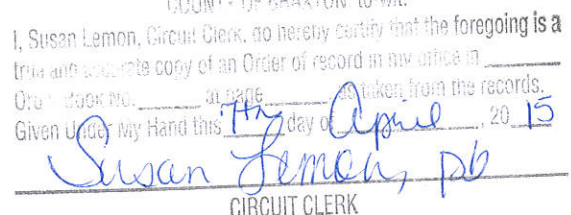 COUNTY OF BRAXTON to-wit:
I, Susan Lemon, Circuit Clerk, do hereby certify that the foregoing is a
true and accurate copy of an Order of record in my office in ______
Order Book No. ______ at page ______ as taken from the records.
Given Under My Hand this 7th day of April, 20 15
Susan Lemon, pb
CIRCUIT CLERK